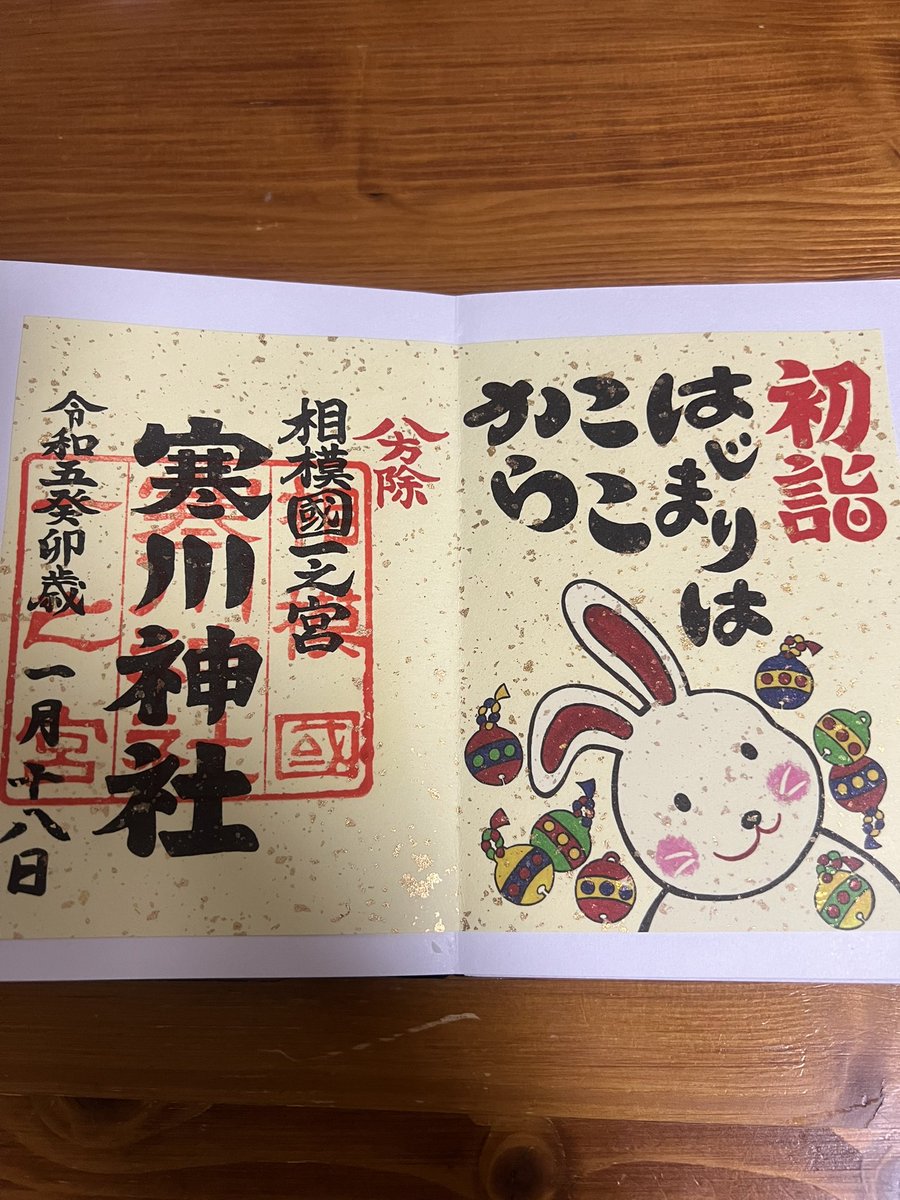 初詣
はじまりは
ここ
から
八方除
相模國一之宮
寒川神社
令和五癸卯歳 一月十八日
相模國
寒川神社
一之宮